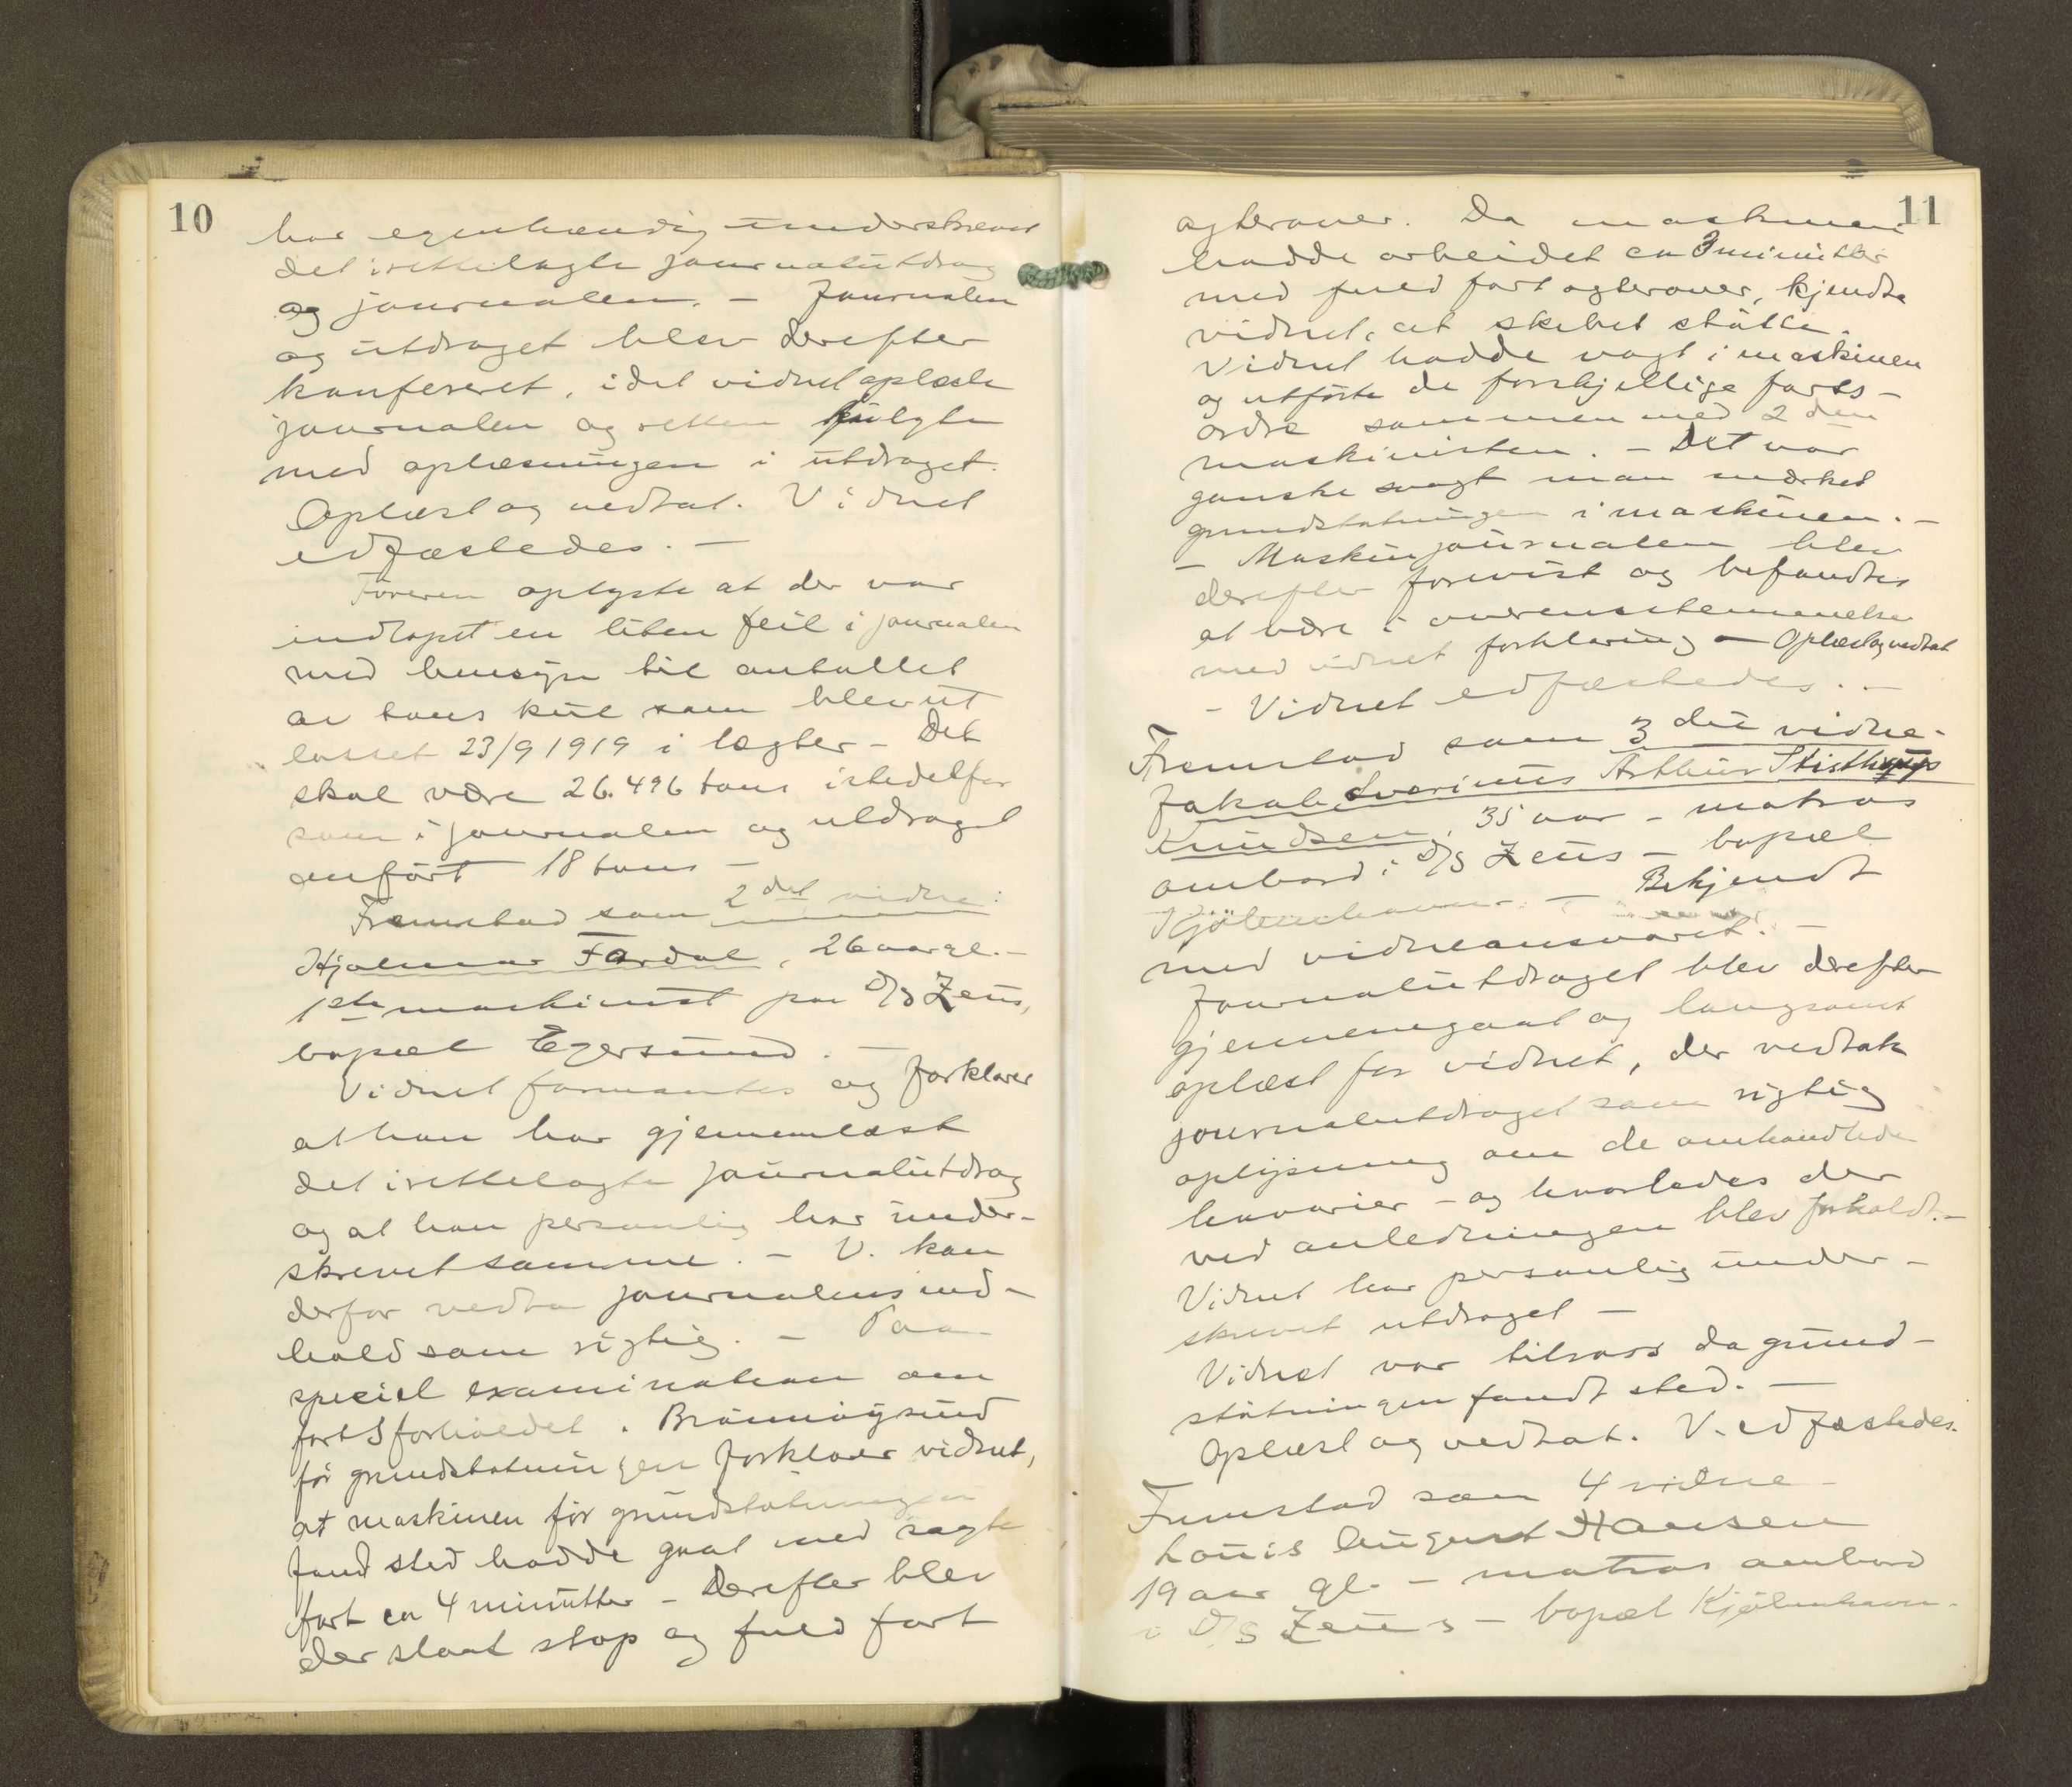 10
har egenhændig underskrevet
det irettelagte journalutdrag
og journalen. – Journalen
og utdraget blev derefter
konfereret, idet vidnet oplæste
journalen og retten fulgte
med oplæsningen i utdraget.
Oplæst og vedtat. Vidnet
edfæstedes. –
Føreren oplyste at der var
indløpet en liten feil i journalen
med hensyn til antallet
av tons kul som blev ut
losset 23/9 1919 i lægter – Det
skal være 26.496 tons istedetfor
som i journalen og utdraget
anført 18 tons –
Fremstod som 2det vidne:
Hjalmar Fardal, 26 aar gl. –
1ste maskinist paa D/S Zeus,
bopæl Egersund. –
Vidnet formantes og forklarer
at han har gjennemlæst
det irettelagte journalutdrag
og at han personlig har under-
skrevet samme. – V. kan
derfor vedta journalens ind-
hold som rigtig. – Paa
speciel examination om
fartsforholdet i Brønnøysund
før grundstøtningen forklarer vidnet,
at maskinen før grundstøtningen
fand sted hadde gaat med sagte
fart ca 4 minutter – Derefter blev
der slaat stop og fuld fart
11
agterover. Da maskinen
hadde arbeidet ca 3 minutter
med fuld fart agterover, kjendte
vidnet, at skibet støtte.
Vidnet hadde vagt i maskinen
og utførte de forskjellige farts-
ordre sammen med 2den
maskinisten. – Det var
ganske svagt man merket
grundstøtningen i maskinen. –
– Maskinjournalen blev
derefter forevist og befandtes
at være i overensstemmelse
med vidnets forklaring – Oplæst og vedtat
– Vidnet edfæstedes. –
Fremstod som 3die vidne –
Jakob Severinus Arthur
Knudsen, 35 aar – matros
ombord i D/S Zeus – bopæl
Kjøbenhavn. – Bekjendt
med vidneansvaret. –
Journalutdraget blev derefter
gjennemgaat og langsomt
oplæst for vidnet, der vedtok
journalutdraget som rigtig
oplysning om de omhandlede
havarier – og hvorledes der
ved anledningen blev forholdt. –
Vidnet har personlig under-
skrevet utdraget –
Vidnet var tilrors da grund-
støtningen fandt sted. –
Oplæst og vedtat. V. edfæstedes.
Fremstod som 4 vidne –
Louis August Hansen
19 aar gl. – matros ombord
i D/S Zeus – bopæl Kjøbenhavn.